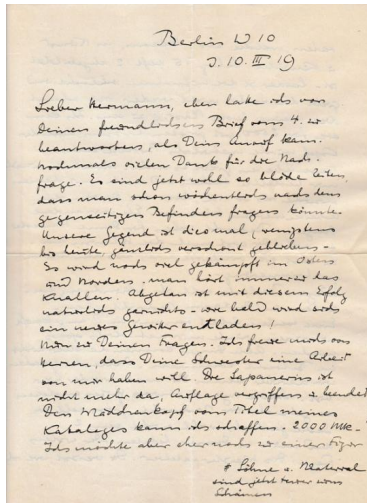 Berlin W 10
D. 10. III 19
Lieber Hermann, eben hatte ich vor
Deinen freundlichen Brief vom 4. zu
beantworten, als Dein Anruf kam.
Nochmals vielen Dank für die Nach-
frage. Es sind jetzt wohl so blöde Zeiten,
dass man schon wöchentlich nach dem
gegenseitigen Befinden fragen könnte.
Unsere Gegend ist diesmal, wenigstens
bis heute, gänzlich verschont geblieben -
Es wird noch viel gekämpft im Osten
und Norden, man hört immerzu das
Knallen. Abgetan ist mit diesem Erfolg
natürlich garnichts - wie bald wird sich
ein neues Gewitter entladen!
Nun zu Deinen Fragen. Ich freue mich von
Herzen, dass Deine Schwester eine Arbeit
von mir haben will. Die Japanerin ist
nicht mehr da, Auflage vergriffen u. beendet
Den Mädchenkopf vom Titel meines
Kataloges kann ich schaffen. 2000 Mk. -
Ich möchte aber eher noch zu einer Figur
# Löhne u. Material
sind jetzt teuer zum
Schämen